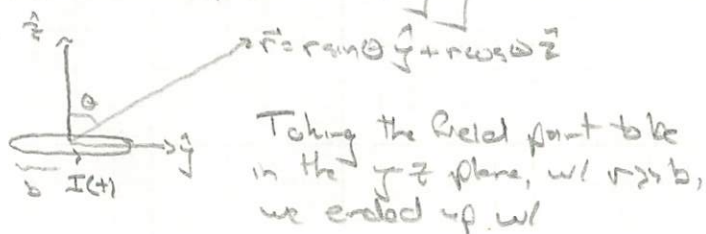 ẑ
r⃗ = r sinθ ŷ + r cosθ ẑ
θ
ŷ
b I(t)
Taking the field point to be
in the y-z plane, w/ r>>b,
we ended up w/